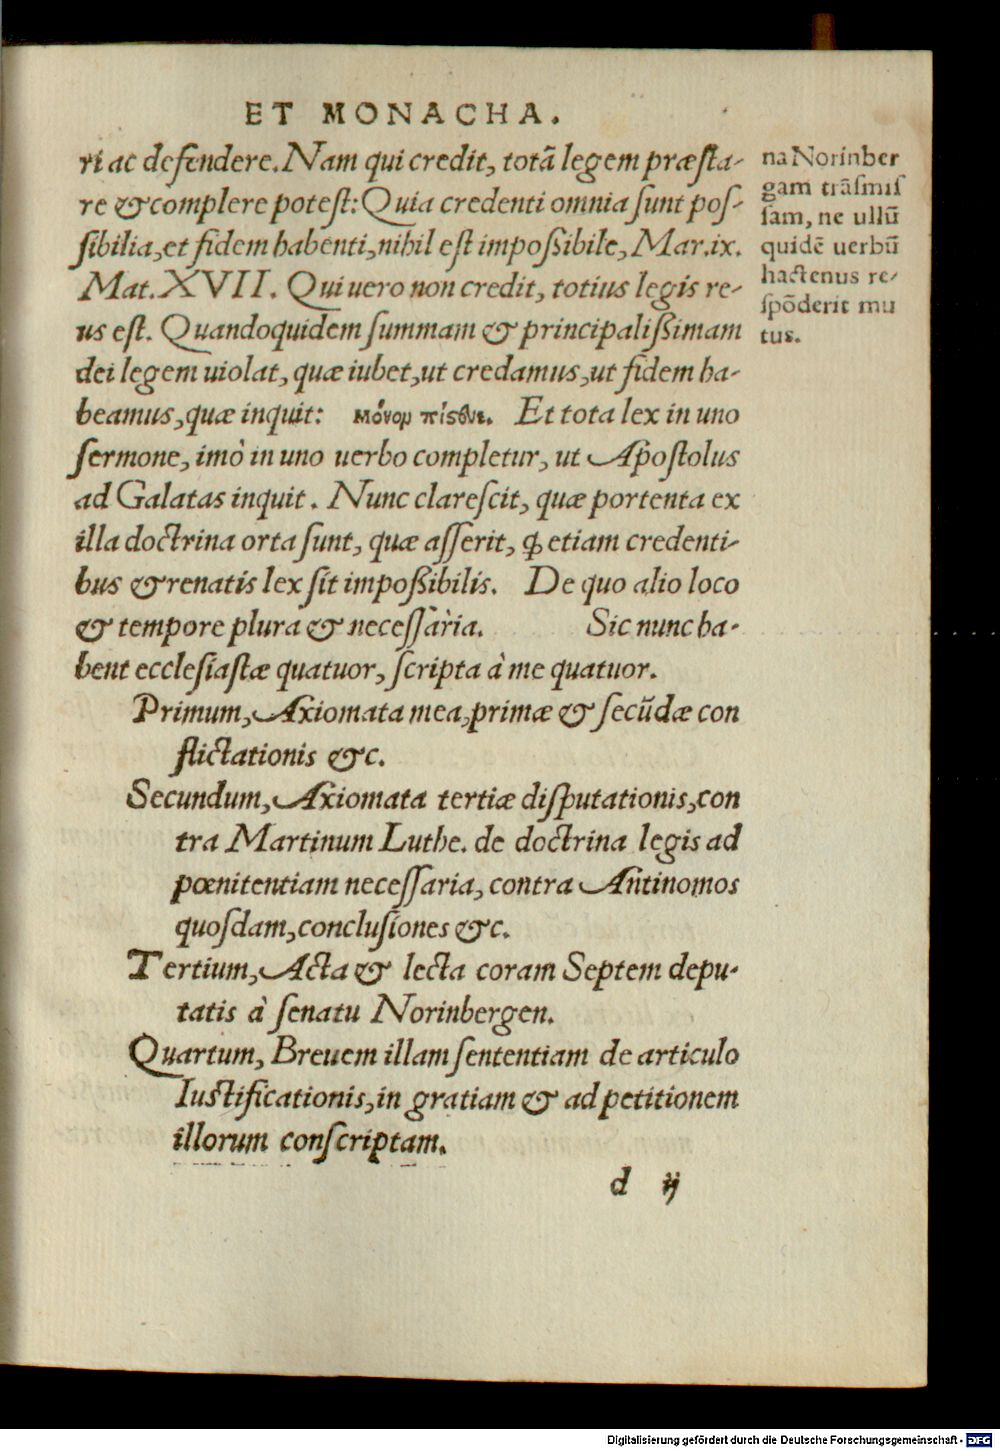 ET MONACHA.
ri ac defendere. Nam qui credit, totā legem præsta-
re & complere potest: Quia credenti omnia sunt pos-
sibilia, et fidem habenti, nihil est impoßibile, Mar. ix.
Mat. XVII. Qui uero non credit, totius legis re-
us est. Quandoquidem summam & principalißimam
dei legem uiolat, quæ iubet, ut credamus, ut fidem ha-
beamus, quæ inquit: μόνομ πίστευε. Et tota lex in uno
sermone, imò in uno uerbo completur, ut Apostolus
ad Galatas inquit. Nunc clarescit, quæ portenta ex
illa doctrina orta sunt, quæ asserit, ꝙ etiam credenti-
bus & renatis lex sit impoßibilis. De quo alio loco
& tempore plura & necessària. Sic nunc ha-
bent ecclesiastæ quatuor, scripta à me quatuor.
Primum, Axiomata mea, primæ & secūdæ con
flictationis &c.
Secundum, Axiomata tertiæ disputationis, con
tra Martinum Luthe. de doctrina legis ad
pœnitentiam necessaria, contra Antinomos
quosdam, conclusiones &c.
Tertium, Acta & lecta coram Septem depu-
tatis à senatu Norinbergen.
Quartum, Breuem illam sententiam de articulo
Iustificationis, in gratiam & ad petitionem
illorum conscriptam.
d ij
na Norinber
gam trāsmis
sam, ne ullū
quidē uerbū
hactenus re-
spōderit mu
tus.
Digitalisierung gefördert durch die Deutsche Forschungsgemeinschaft - DFG